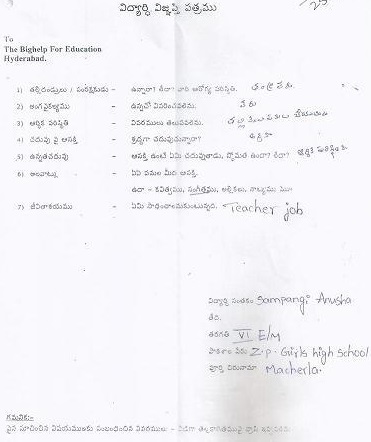 విద్యార్థి విజ్ఞప్తి పత్రము
To
The Bighelp For Education
Hyderabad.
1) తల్లిదండ్రులు / సంరక్షకుడు - ఉన్నారా? లేదా? వారి ఆరోగ్య పరిస్థితి.
2) అంగవైకల్యము - ఉన్నచో వివరించవలెను. లేదు
3) ఆర్థిక పరిస్థితి - వివరములు తెలుపవలెను.
4) చదువు పై ఆసక్తి - శ్రద్ధగా చదువుచున్నారా?
5) ఉన్నతచదువు - ఆసక్తి ఉంటే ఏమి చదువుతాడు, స్తోమత ఉందా? లేదా?
6) అలవాట్లు - ఏఏ పనుల మీద ఆసక్తి.
ఉదా - కవిత్వము, సంగీతము, అల్లికలు, నాట్యము
7) జీవితాశయము - ఏమి సాధించాలనుకుంటున్నది. Teacher job
విద్యార్థి సంతకం Sampangi Anusha
తేది.
తరగతి VI E/M
పాఠశాల పేరు Z.P. Girls high School
పూర్తి చిరునామా Macherla.
గమనిక:-
పైన సూచించిన విషయములకు సంబంధించిన వివరములు -